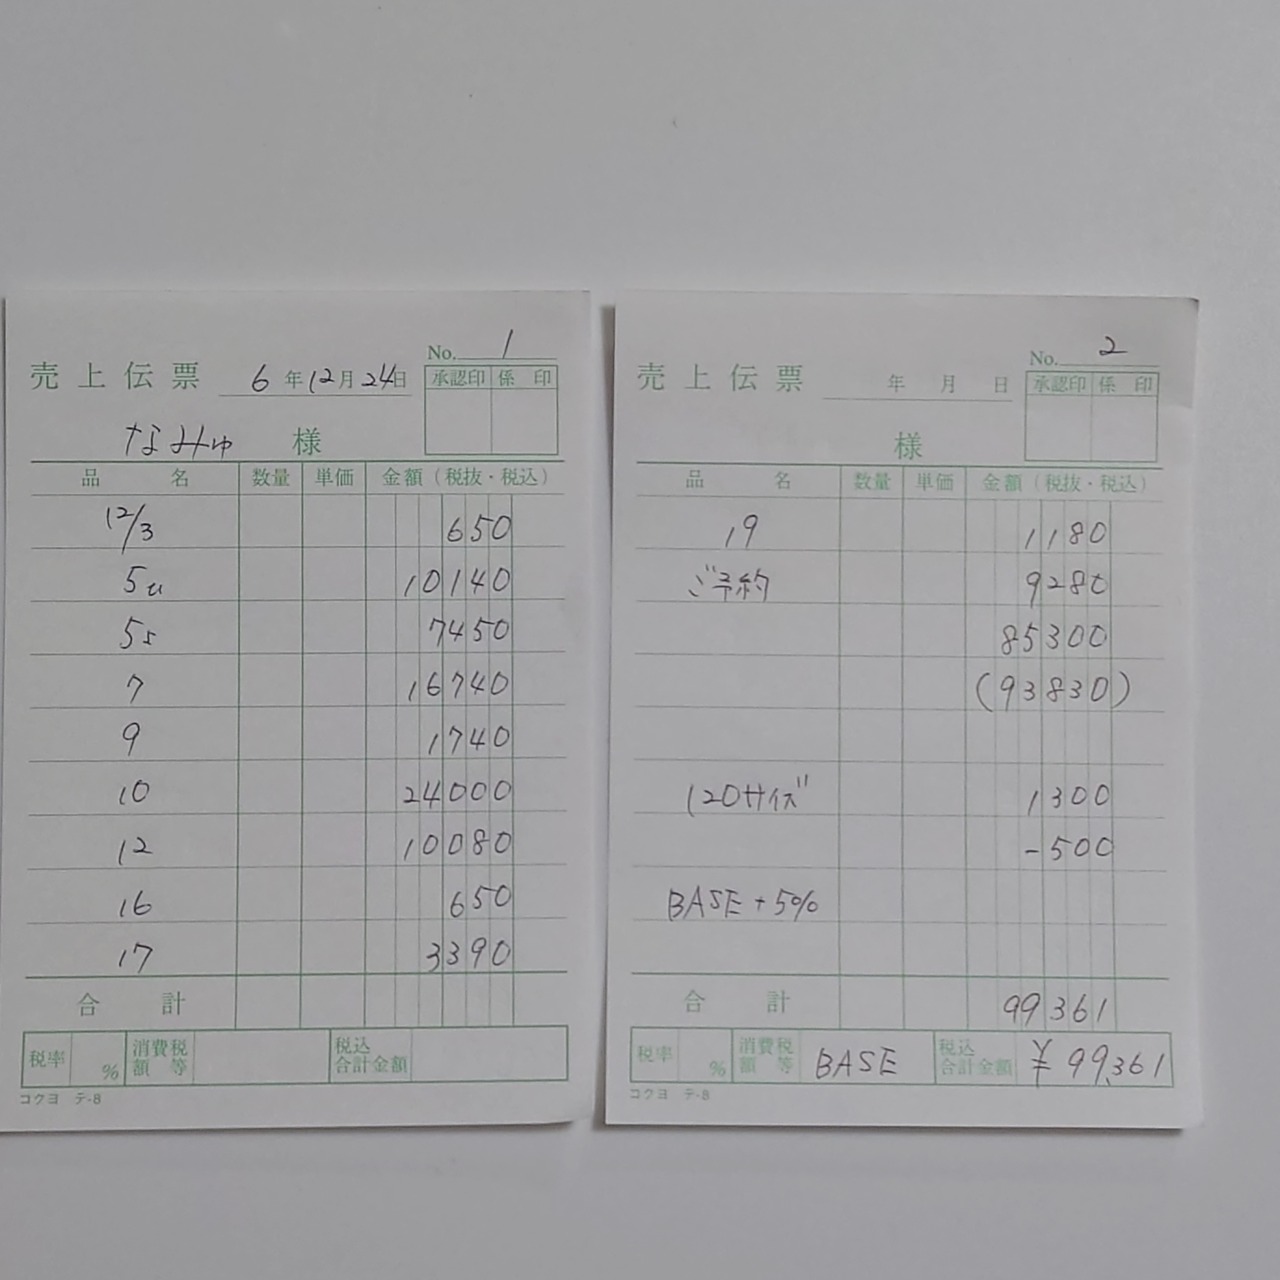 売上伝票 6年12月24日 No. 1
承認印 係印
なみゅ 様
品名 数量 単価 金額(税抜・税込)
12/3 650
5u 10140
5s 7450
7 16740
9 1740
10 24000
12 10080
16 650
17 3390
合計
税率 % 消費税額等 税込合計金額
コクヨ テ-8
売上伝票 年 月 日 No. 2
承認印 係印
様
品名 数量 単価 金額(税抜・税込)
19 1180
ご予約 9280
85300
(93830)
120サイズ 1300
-500
BASE + 5%
合計 99361
税率 % 消費税額等 BASE 税込合計金額 ¥99,361
コクヨ テ-8